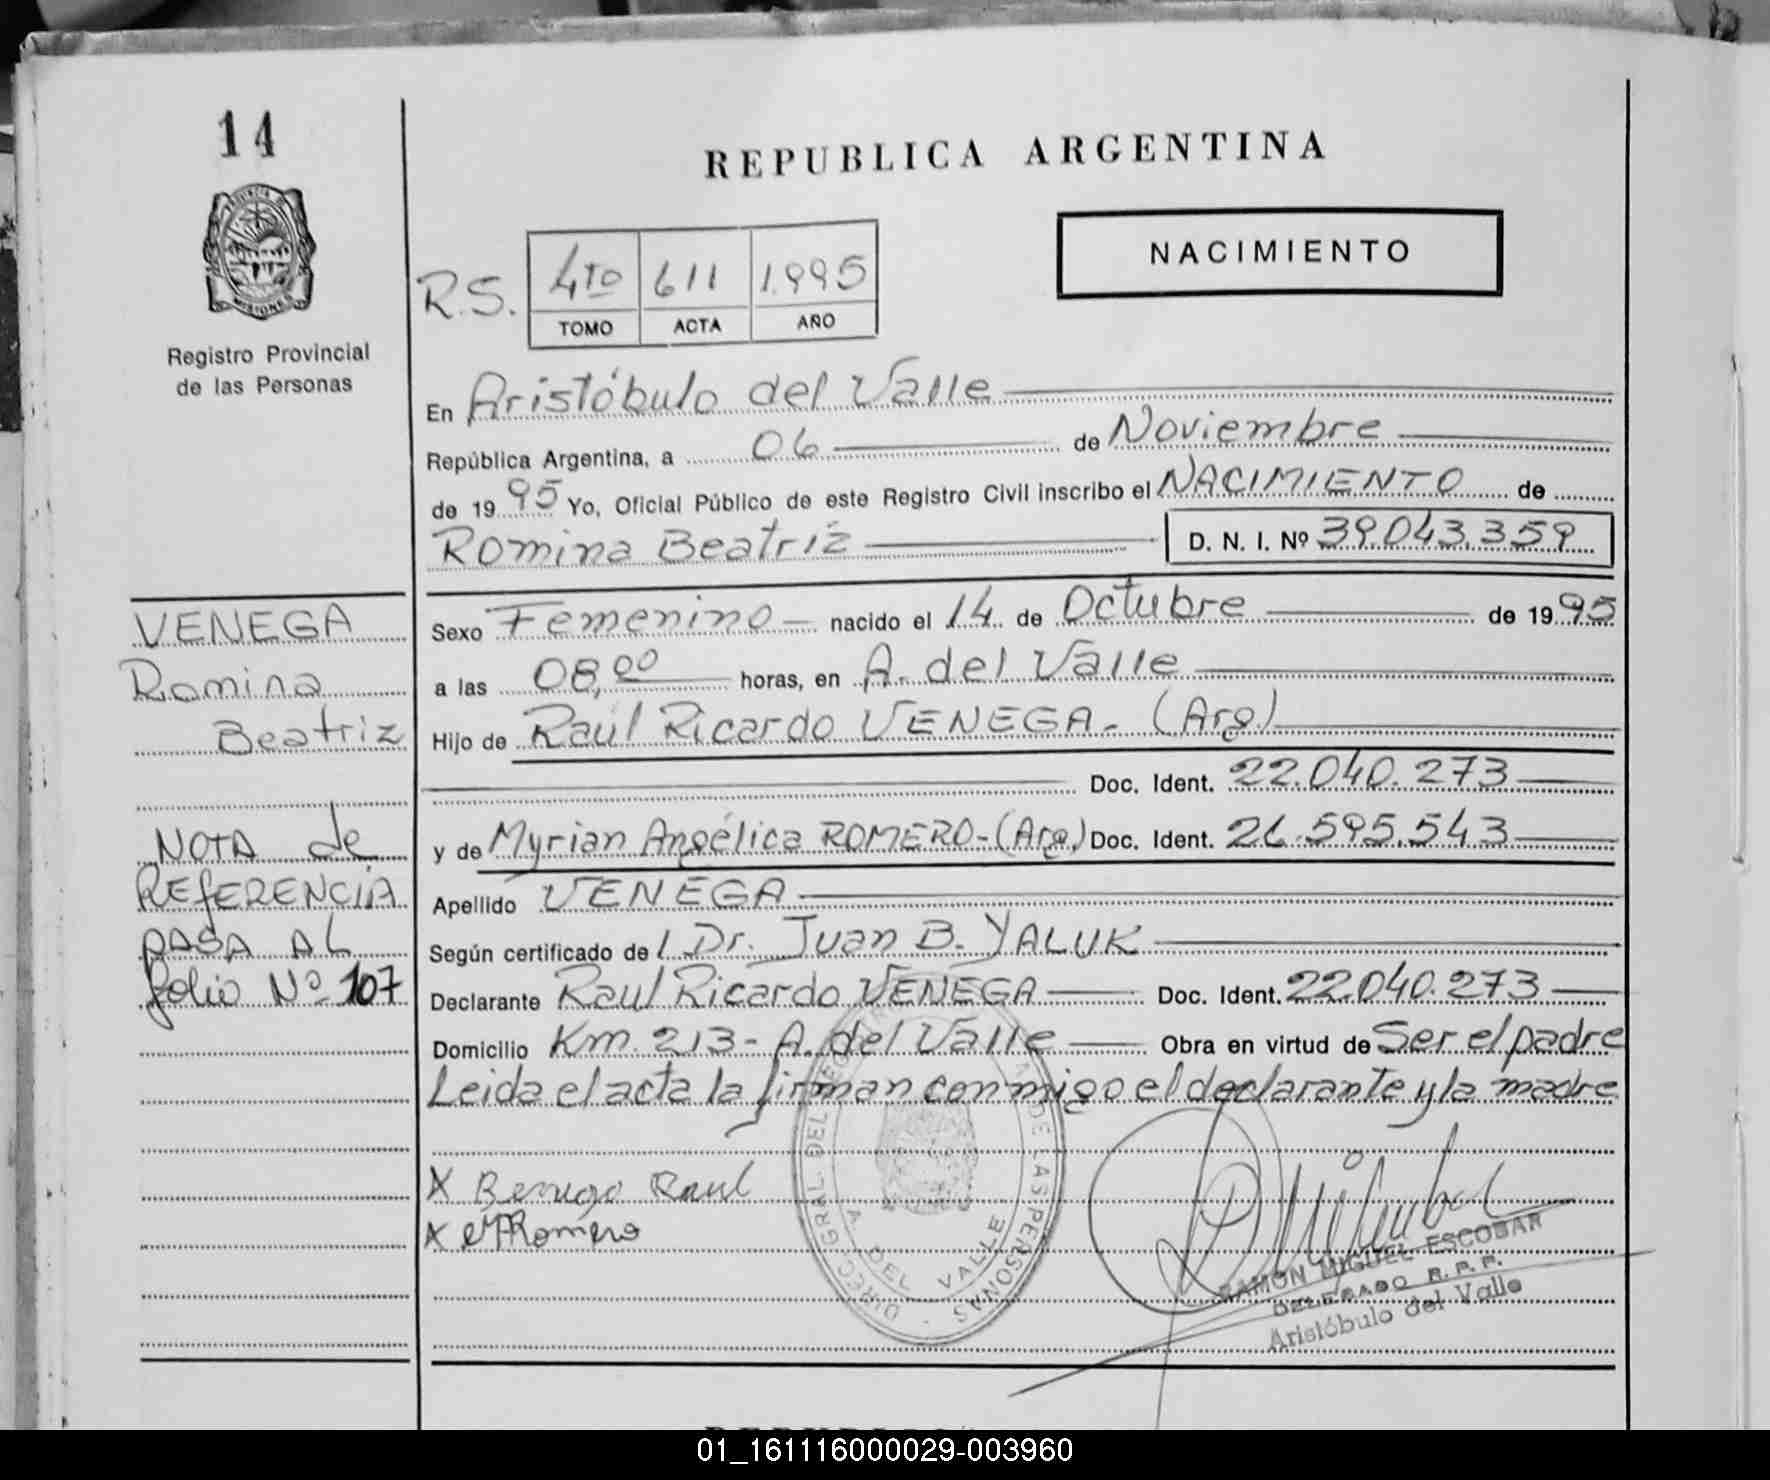 14
REPUBLICA ARGENTINA
NACIMIENTO
R.S. 4to 611 1.995
TOMO ACTA AÑO
Registro Provincial
de las Personas
En Aristóbulo del Valle
República Argentina, a 06 de Noviembre
de 1995 Yo, Oficial Público de este Registro Civil inscribo el NACIMIENTO de
Romina Beatriz D. N. I. Nº 39.043.359
VENEGA
Romina
Beatriz
NOTA de
REFERENCIA
PASA AL
folio Nº 107
Sexo Femenino nacido el 14 de Octubre de 1995
a las 08,00 horas, en A. del Valle
Hijo de Raúl Ricardo VENEGA.- (Arg.)
Doc. Ident. 22.040.273
y de Myrian Angélica ROMERO-(Arg.) Doc. Ident. 26.595.543
Apellido VENEGA
Según certificado del Dr. Juan B. YALUK
Declarante Raul Ricardo VENEGA Doc. Ident. 22.040.273
Domicilio Km. 213- A. del Valle Obra en virtud de Ser el padre
Leida el acta la firman conmigo el declarante y la madre
X Raul
X Romero
DEL VALLE
DE LAS PERSONAS
RAMON MIGUEL ESCOBAR
DELEGADO R. P. P.
Aristóbulo del Valle
01_161116000029-003960